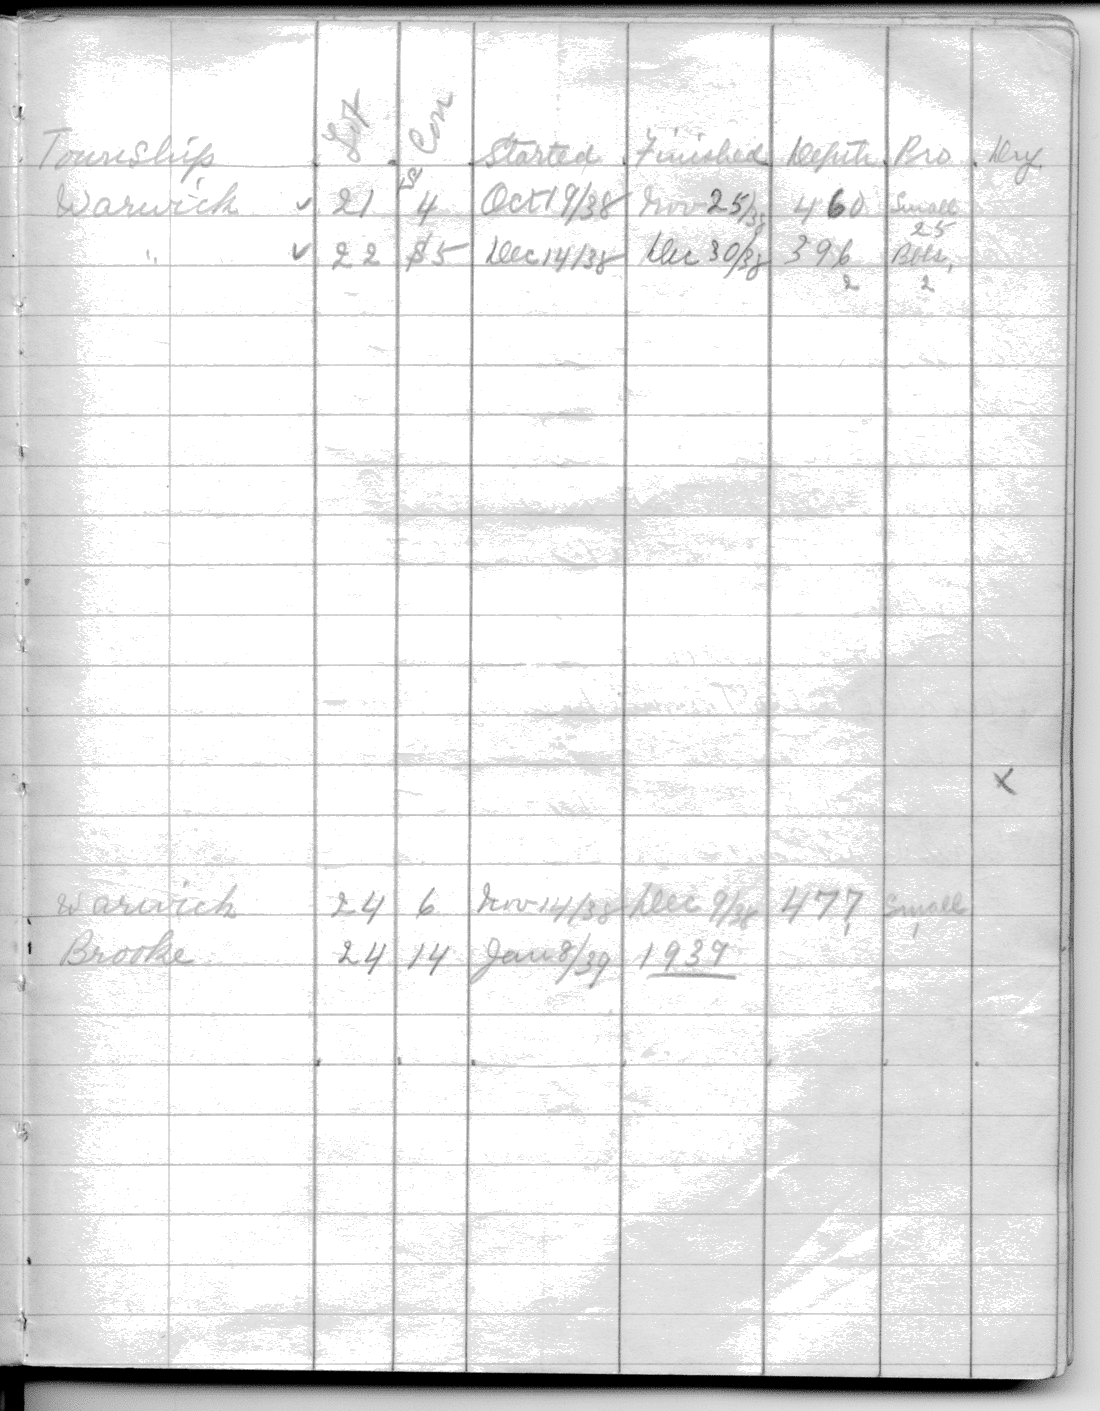 Township Lot Con Started Finished Depth Bro Dry
Warwick ✓ 21 4 Oct 19/38 Nov 25/38 460 Small
25
" ✓ 22 5 Dec 14/38 Dec 30/38 396 Bbls.
2 2
x
Warwick 24 6 Nov 14/38 Dec 9/38 477 Small
Brooke 24 14 Jan 8/39 1939